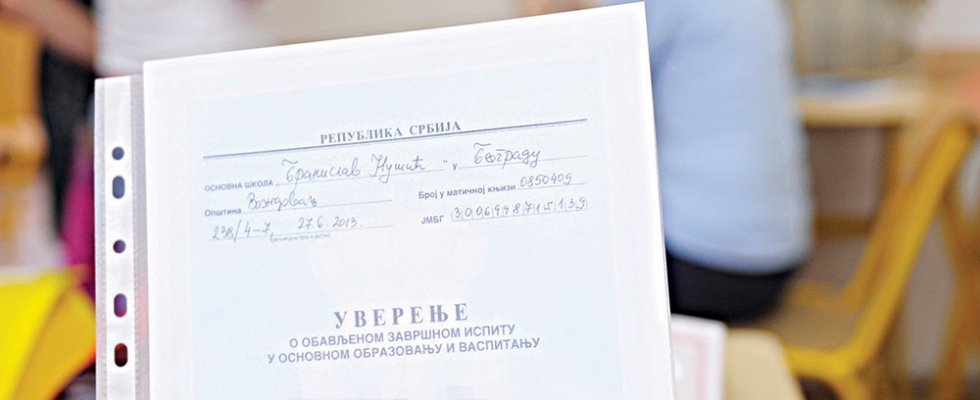 РЕПУБЛИКА СРБИЈА
ОСНОВНА ШКОЛА „Бранислав Нушић" у Београду
Општина Вождовац Број у матичној књизи 0850409
238/4-7, 27.6.2013. ЈМБГ 3006998715139
УВЕРЕЊЕ
О ОБАВЉЕНОМ ЗАВРШНОМ ИСПИТУ
У ОСНОВНОМ ОБРАЗОВАЊУ И ВАСПИТАЊУ